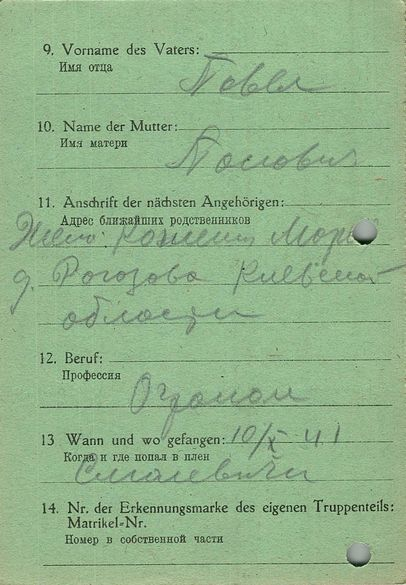 9. Vorname des Vaters:
Имя отца
Повел
10. Name der Mutter:
Имя матери
11. Anschrift der nächsten Angehörigen:
Адрес ближайших родственников
Жена
д. Рогозова Киевской
области
12. Beruf:
Профессия
Огроном
13 Wann und wo gefangen: 10/X 41
Когда и где попал в плен
14. Nr. der Erkennungsmarke des eigenen Truppenteils:
Matrikel-Nr.
Номер в собственной части